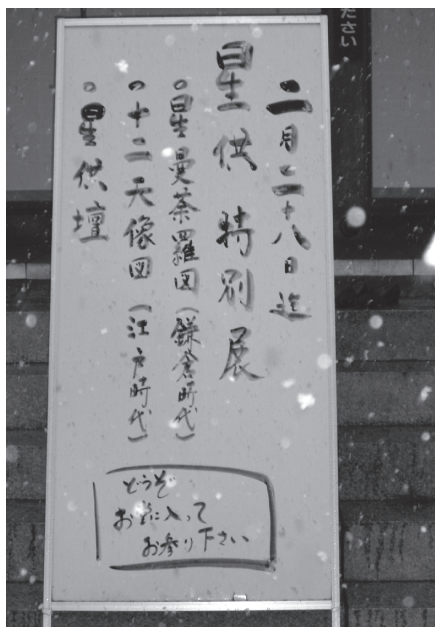 ださい
○二月二十八日迄
星供特別展
○星曼荼羅図(鎌倉時代)
○十二天像図(江戸時代)
○星供壇
どうぞ
お堂に入って
お参り下さい